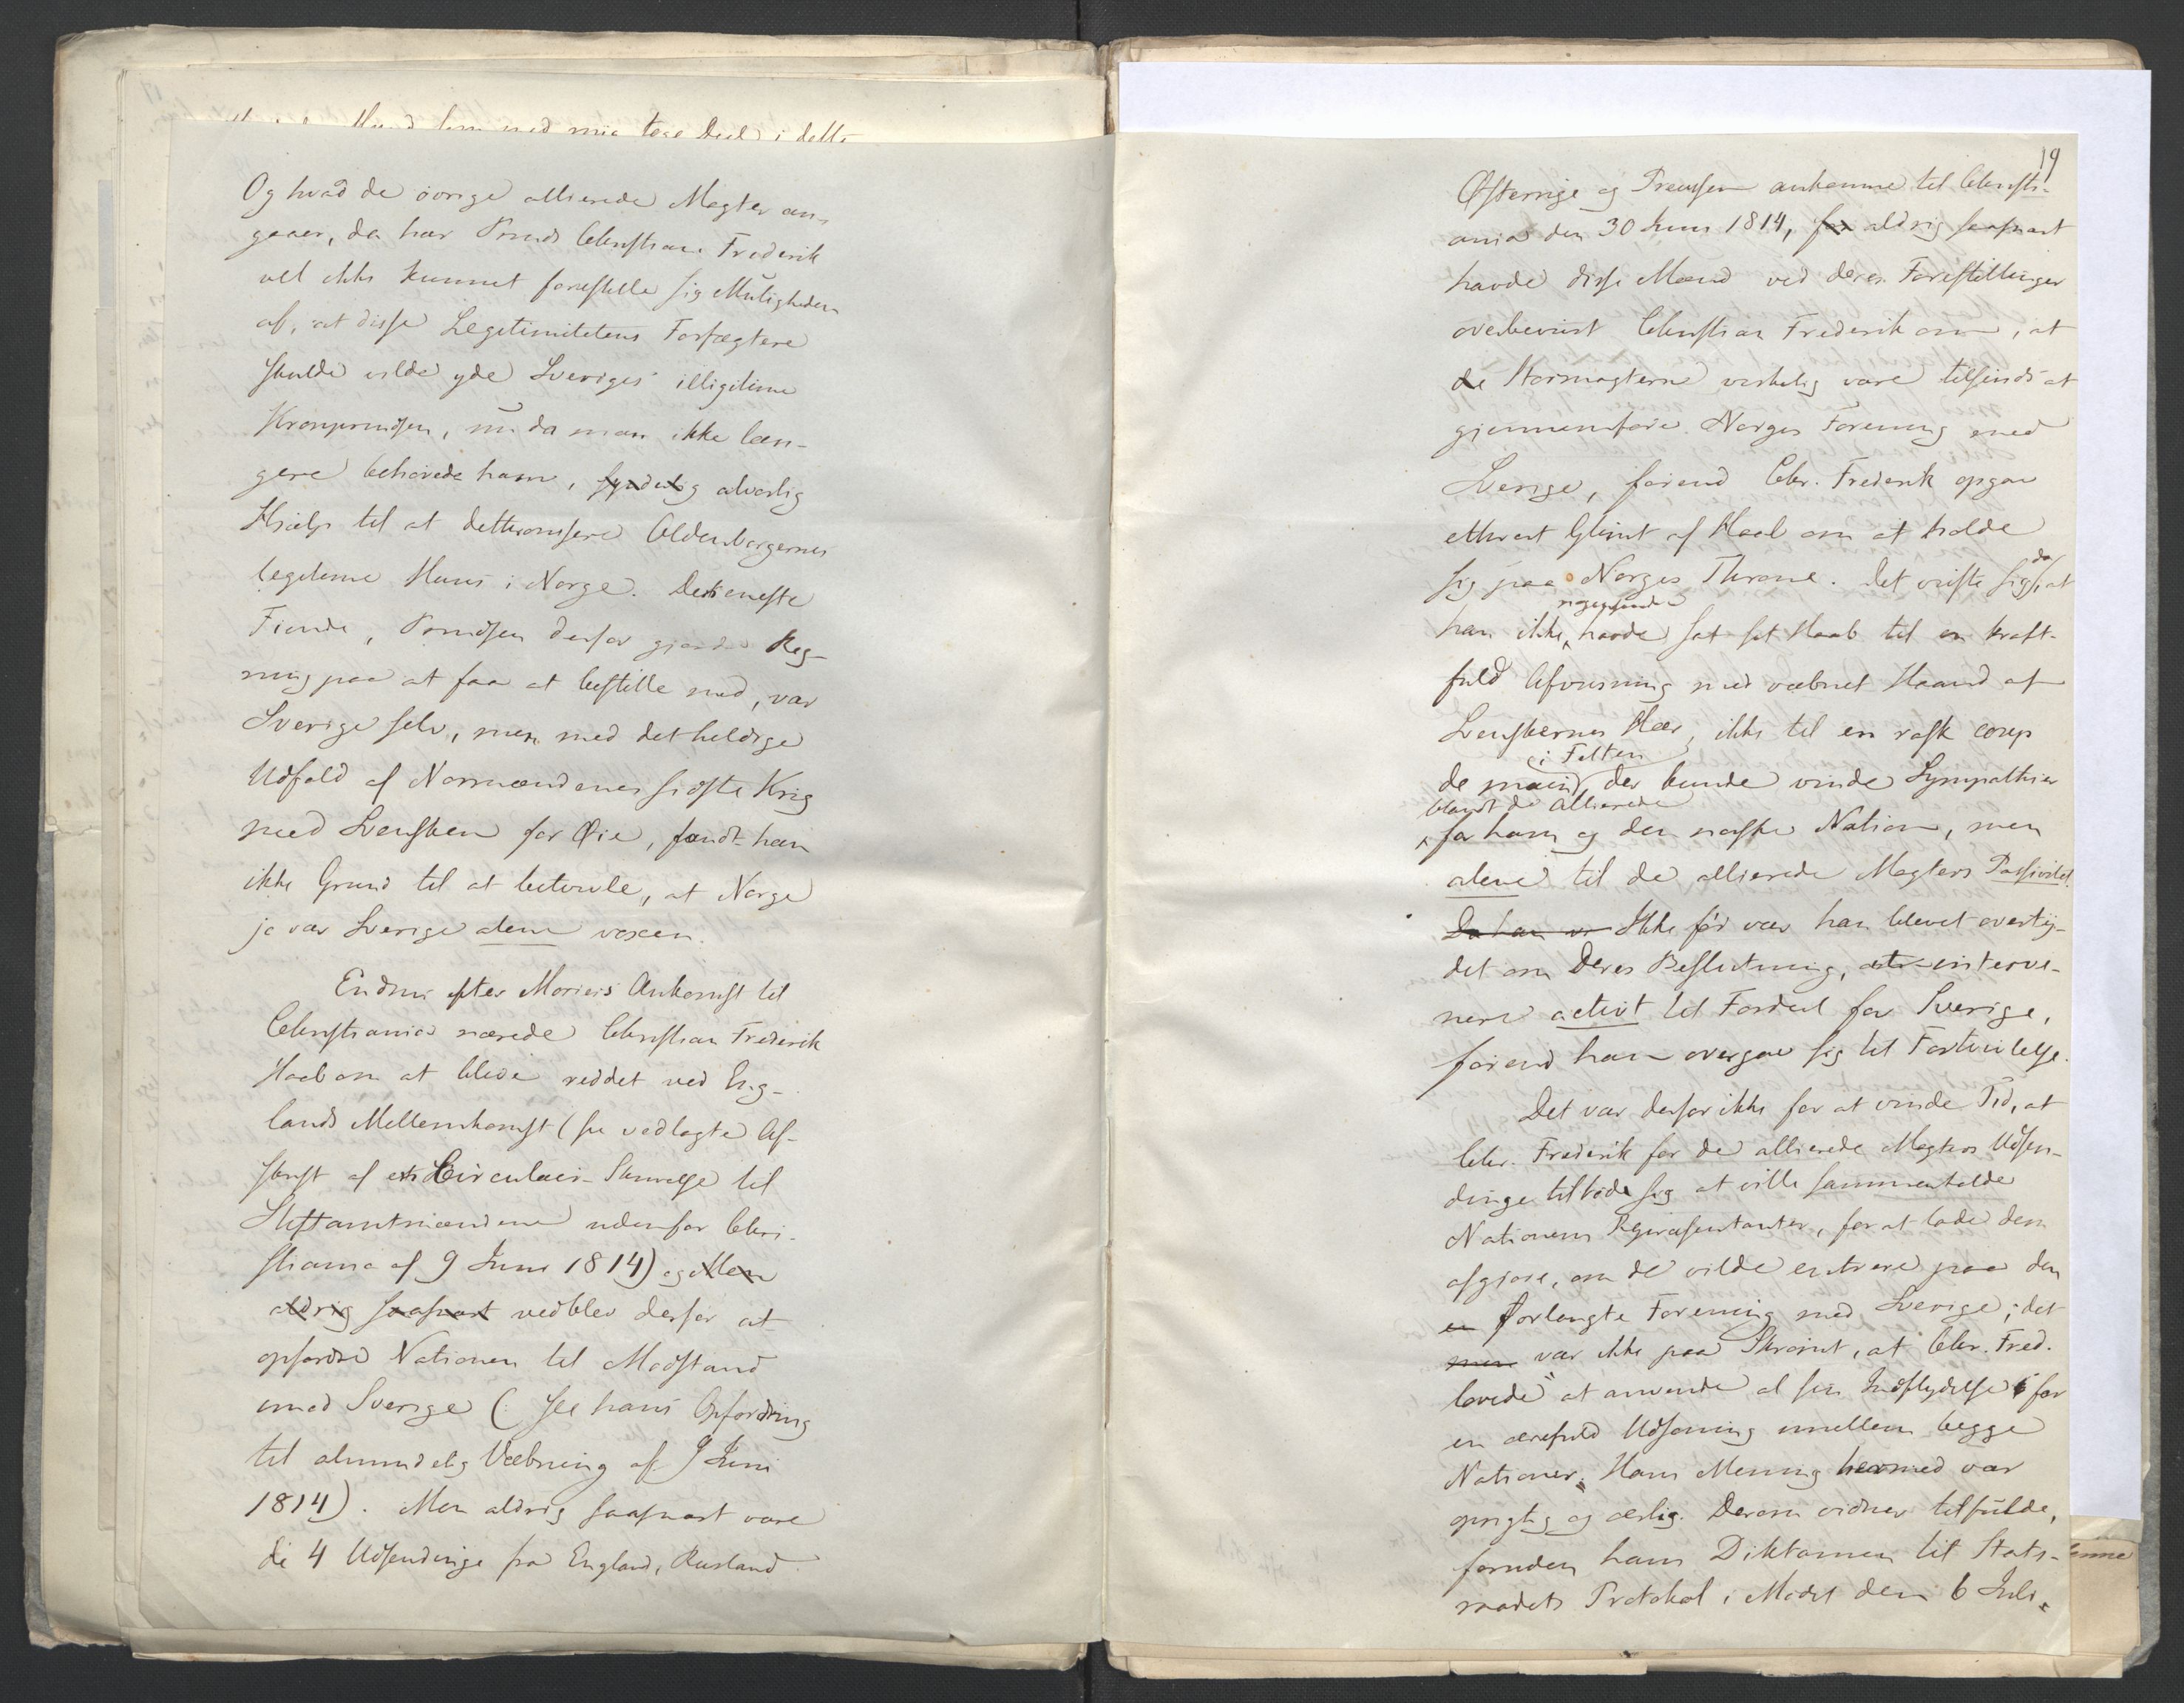 Og hvad de øvrige allierede Magter an-
gaaer, da har Prinds Christian Frederik
vel ikke kunnet forestille sig Muligheden
af, at disse Legitimitetens Forfægtere
skulde vilde yde Sveriges illigitime
Kronprindsen, nu da man ikke læn-
gere behøvede ham, synderlig alvorlig
Hjælp til at dethronisere Oldenborgernes
legitime Huus i Norge. Den eneste
Fiende, Prindsen derfor gjorde Reg-
ning paa at faa at bestille med, var
Sverige selv, men med det heldige
Udfald af Normændenes sidste Krig
med Svensken for Øie, fandt han
ikke Grund til at betvivle, at Norge
jo var Sverige alene voxen.
Endnu efter Moriers Ankomst til
Christiania nærede Christian Frederik
Haab om at blive reddet ved Eng-
lands Mellemkomst (se vedlagte Af-
skrift af et Circulair-Skrivelse til
Stiftamtmændene udenfor Chri-
stiania af 9 Juni 1814) og Men
aldrig saasnart vedblev derfor at
opfordre Nationen til Modstand
mod Sverige (: see hans Opfordring
til almindelig Væbning af 9 Juni
1814). Men aldrig saasnart vare
de 4 Udsendinge fra England, Rusland
19
Østerrige og Preussen ankomne til Christi-
ania den 30 Juni 1814, før aldrig saasnart
havde disse Mænd ved deres Forestillinger
overbeviist Christian Frederik om, at
de Stormagterne virkelig vare tilsinds at
gjennemføre Norges Forening med
Sverige, førend Chr. Frederik opgav
ethvert Glimt af Haab om at holde
sig paa Norges Throne. Det viiste sig da, at
han ikke havde sat sit Haab til en kraft-
fuld Afviisning med væbnet Haand af
Svenskernes Hær, ikke til en rask coup
de main i Felten, der kunde vinde Sympathier
blandt de Allierede
for ham og den norske Nation, men
alene til de allierede Magters Passivitet.
Da han var Ikke før var han blevet overty-
det om Deres Beslutning, at interve-
nere activt til Fordeel for Sverige,
førend han overgav sig til Fortvivlelse.
Det var derfor ikke for at vinde Tid, at
Chr. Frederik for de allierede Magters Udsen-
dinge tilbød sig at ville sammenkalde
Nationens Repræsentanter, for at lade dem
afgjøre, om de vilde entrere paa den
en forlangte Forening med Sverige; det
men var ikke paa Skrømt, at Chr. Fred.
lovede "at anvende al sin Indflydelse for
en ærefuld Udsoning imellem begge
Nationer." Hans Mening hermed var
oprigtig og ærlig. Derom vidner tilfulde,
foruden hans Diktamen til Stats-
raadets Protokol i Mødet den 6 Juli